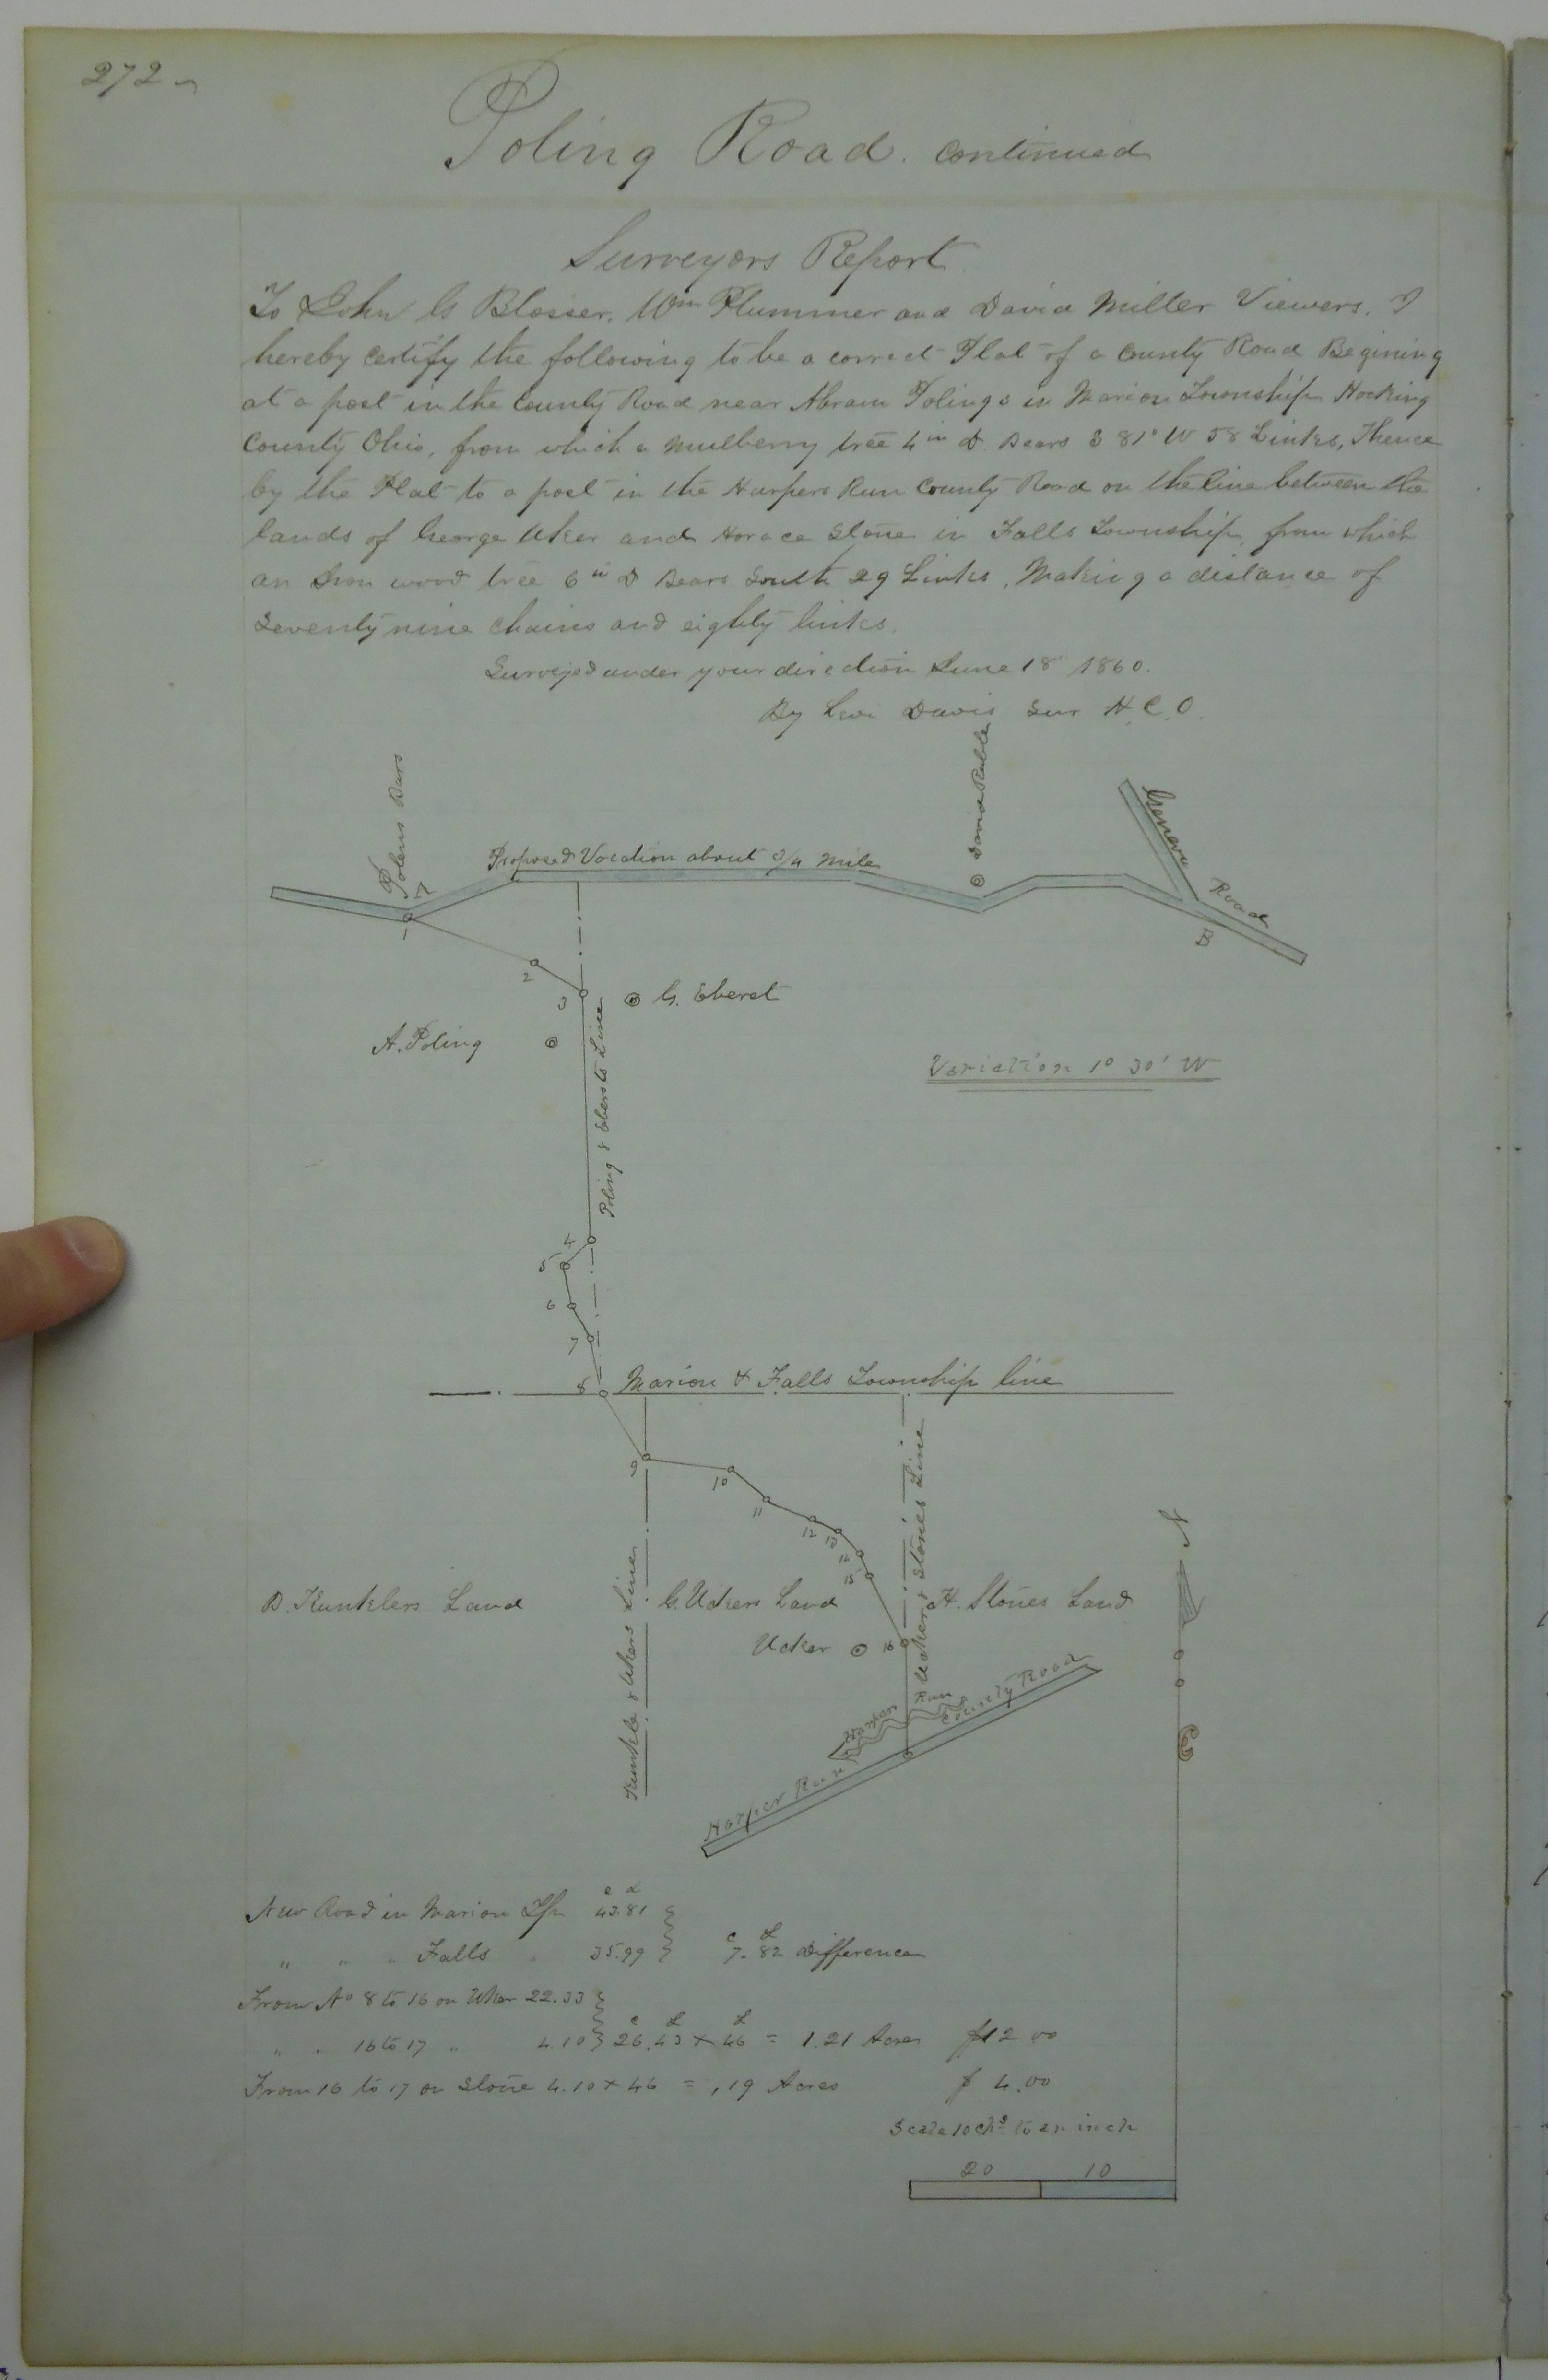 272
Poling Road. continued
Surveyors Report
To John G Blosser, Wm Plummer and David Miller Viewers. I
hereby certify the following to be a correct Plat of a County Road Begining
at a post in the County Road near Abram Polings in Marion Township Hocking
County Ohio, from which a mulberry tree 4 in D. Bears S 81° W 58 Links, Thence
by the Plat to a post in the Harpers Run County Road on the line between the
lands of George Uker and Horace Stone in Falls Township, from which
an Iron wood tree 6 in D Bears South 29 Links. Making a distance of
Seventy nine chains and eighty links.
Surveyed under your direction June 18 1860.
By Levi Davis Sur H.C.O.
Polens Bars
David Ruble
Geneva
Road
Proposed Vocation about 3/4 mile
A
B
1
2
3
G. Eberst
A. Poling
Poling & Ebersts Line
Variation 1° 30' W
4
5
6
7
8
Marion & Falls Township line
9
10
11
12
13
14
15
N
D. Kunklers Land
Kunkle & Ukers Line
G. Uckers Land
Ukers & Stones Line
H. Stones Land
Ucker
16
Harper Run
Harper Run County Road
c L
New Road in Marion Tp 43.81
c L
" " " Falls " 35.99 7.82 Difference
From No 8 to 16 on Uker 22.33
c L L
" " 16 to 17 " 4.10 26.43 x 46 = 1.21 Acres $12 00
From 16 to 17 on Stone 4.10 x 46 = ,19 Acres $ 4.00
Scale 10 chs to an inch
20 10